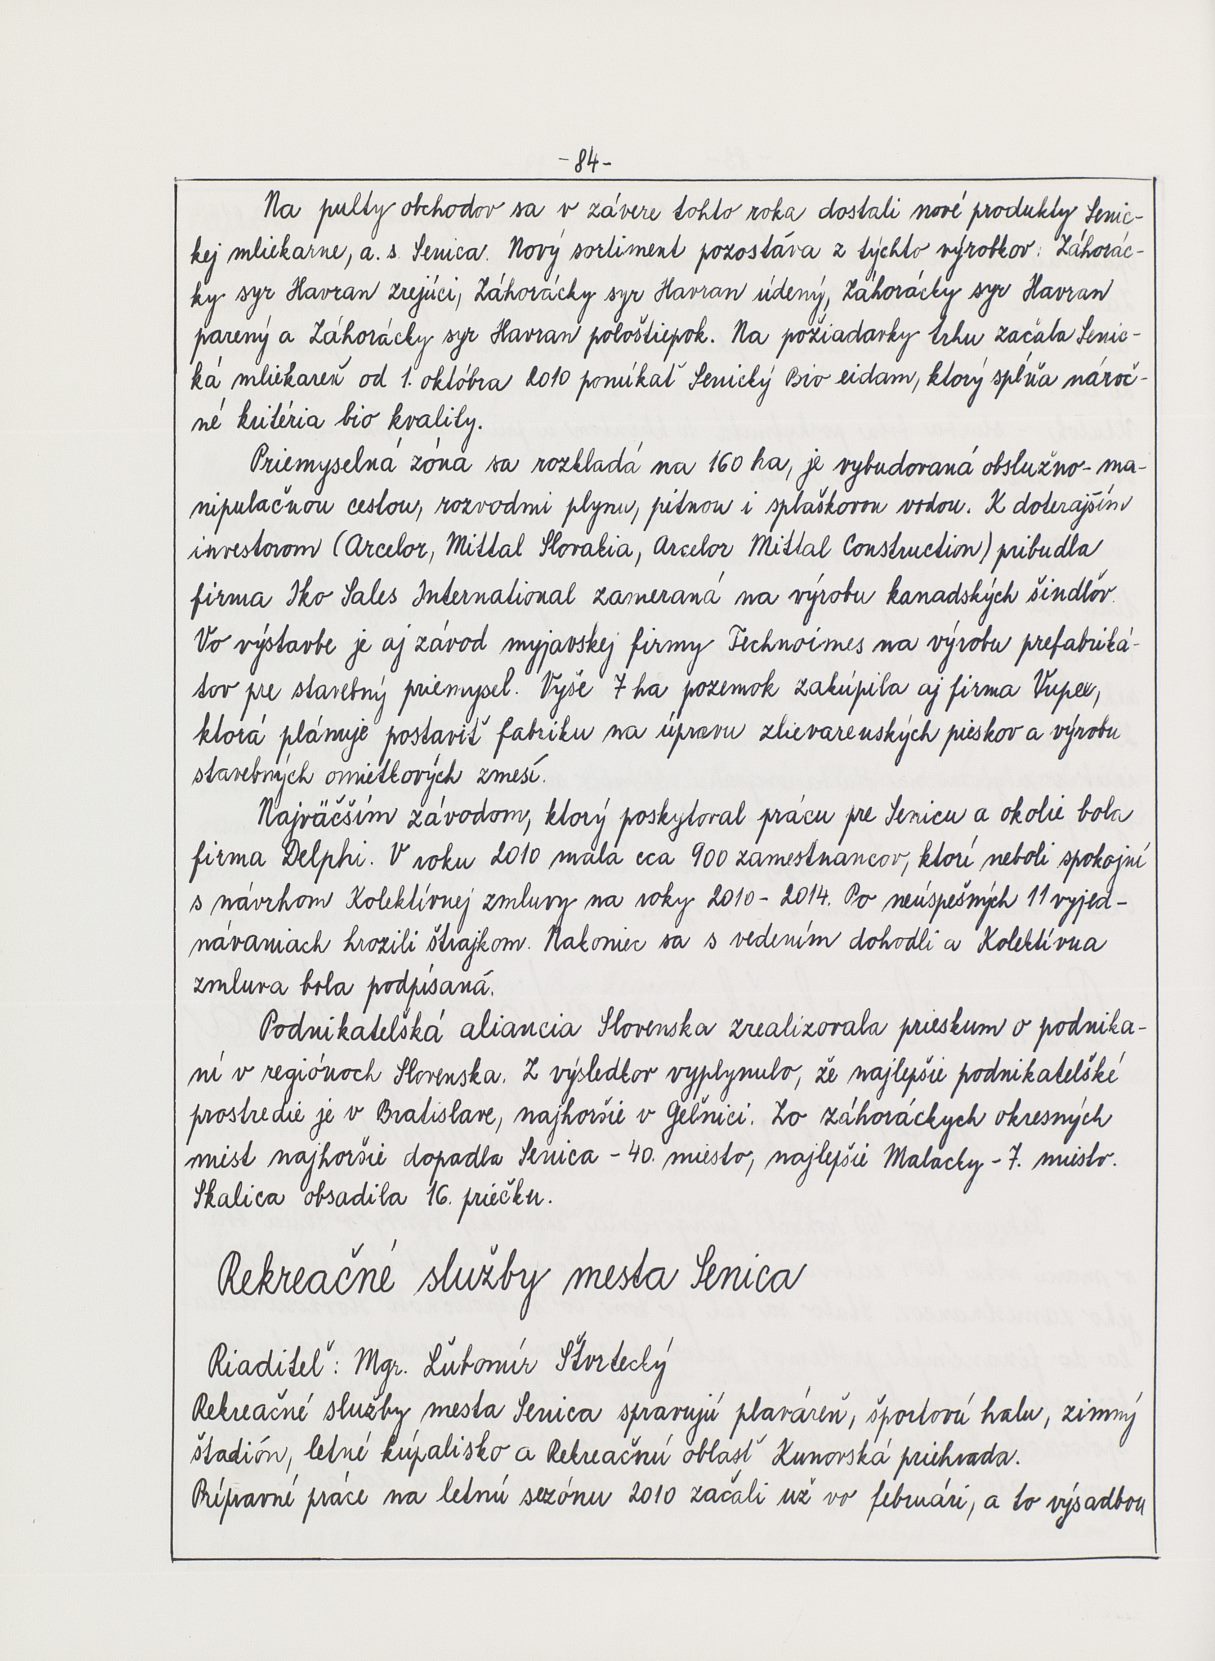 -84-
Na pulty obchodov sa v závere tohto roka dostali nové produkty Senic-
kej mliekarne, a. s. Senica. Nový sortiment pozostáva z týchto výrobkov: Záhorác-
ky syr Havran zrejúci, Záhorácky syr Havran údený, Záhorácky syr Havran
parený a Záhorácky syr Havran pološtiepok. Na požiadavky trhu začala Senic-
ká mliekareň od 1. októbra 2010 ponúkať Senický Bio eidam, ktorý spĺňa nároč-
né kritéria bio kvality.
Priemyselná zóna sa rozkladá na 160 ha, je vybudovaná obslužno-ma-
nipulačnou cestou, rozvodmi plynu, pitnou i splaškovou vodou. K doterajším
investorom (Arcelor, Mittal Slovakia, Arcelor Mittal Construction) pribudla
firma Iko Sales International zameraná na výrobu kanadských šindľov.
Vo výstavbe je aj závod myjavskej firmy Technoimes na výrobu prefabriká-
tov pre stavebný priemysel. Vyše 7 ha pozemok zakúpila aj firma Vupex,
ktorá plánuje postaviť fabriku na úpravu zlievarenských pieskov a výrobu
stavebných omietkových zmesí.
Najväčším závodom, ktorý poskytoval prácu pre Senicu a okolie bola
firma Delphi. V roku 2010 mala cca 900 zamestnancov, ktorí neboli spokojní
s návrhom Kolektívnej zmluvy na roky 2010-2014. Po neúspešných 11 vyjed-
návaniach hrozili štrajkom. Nakoniec sa s vedením dohodli a Kolektívna
zmluva bola podpísaná.
Podnikateľská aliancia Slovenska zrealizovala prieskum o podnika-
ní v regiónoch Slovenska. Z výsledkov vyplynulo, že najlepšie podnikateľské
prostredie je v Bratislave, najhoršie v Gelnici. Zo záhoráckych okresných
miest najhoršie dopadla Senica - 40. miesto, najlepšie Malacky - 7. miesto.
Skalica obsadila 16. priečku.
Rekreačné služby mesta Senica
Riaditeľ: Mgr. Ľubomír Štvrtecký
Rekreačné služby mesta Senica spravujú plaváreň, športovú halu, zimný
štadión, letné kúpalisko a Rekreačnú oblasť Kunovská priehrada.
Prípravné práce na letnú sezónu 2010 začali už vo februári, a to výsadbou